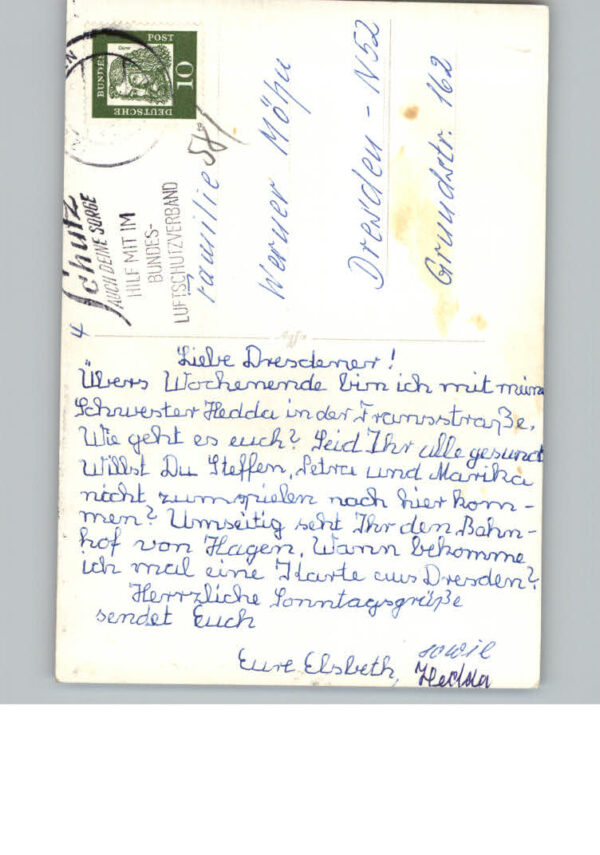 DEUTSCHE
BUNDES
POST
Dürer
10
Schutz
AUCH DEINE SORGE
HILF MIT IM
BUNDES-
LUFTSCHUTZVERBAND
Familie
Werner
Dresden - N52
Grundstr. 162
4
Liebe Dresdener!
Übers Wochenende bin ich mit meine
Schwester Hedda in der Fransstraße.
Wie geht es euch? Seid Ihr alle gesund
Willst Du Steffen, Petra und Marika
nicht zum spielen nach hier kom-
men? Umseitig seht Ihr den Bahn-
hof von Hagen. Wann bekomme
ich mal eine Karte aus Dresden?
Herrzliche Sonntagsgrüße
sendet Euch
Eure Elsbeth, sowie
Hedda